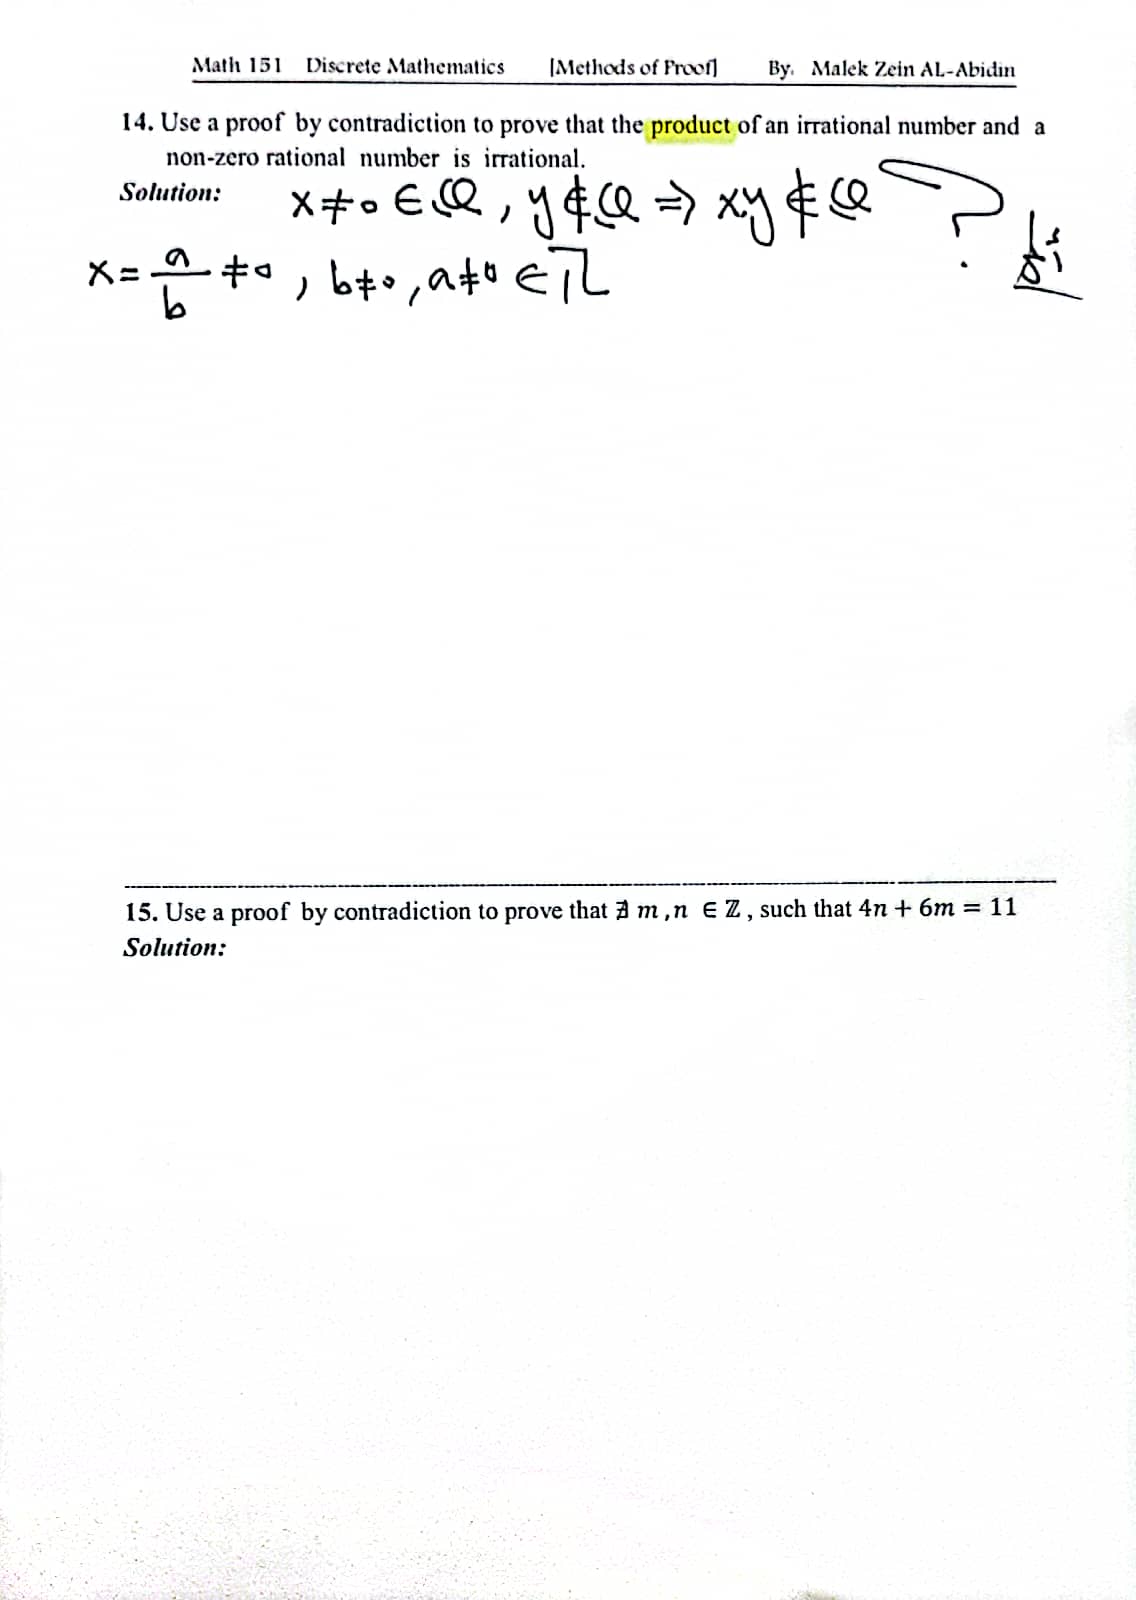 Math 151 Discrete Mathematics [Methods of Proof] By. Malek Zein AL-Abidin
14. Use a proof by contradiction to prove that the product of an irrational number and a
non-zero rational number is irrational.
Solution: x≠0 ∈ ℚ , y ∉ ℚ ⇒ xy ∉ ℚ ?
x = a/b ≠ 0 , b≠0 , a≠0 ∈ ℤ
15. Use a proof by contradiction to prove that ∄ m ,n ∈ ℤ , such that 4n + 6m = 11
Solution: